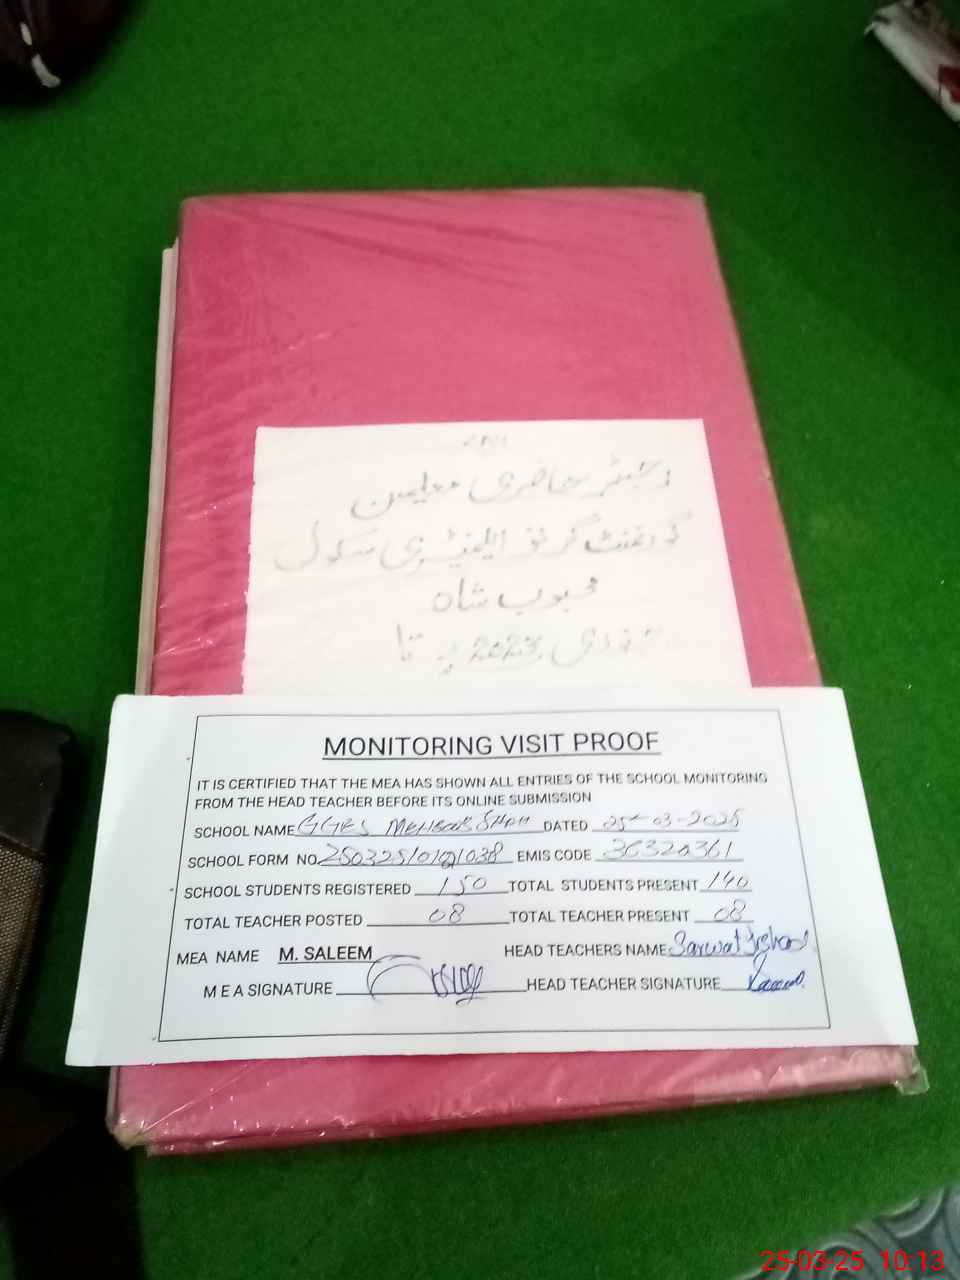 رجسٹر حاضری معلمین
گورنمنٹ گرلز ایلیمنٹری سکول
محبوب شاہ
جنوری 2023ء تا
MONITORING VISIT PROOF
IT IS CERTIFIED THAT THE MEA HAS SHOWN ALL ENTRIES OF THE SCHOOL MONITORING
FROM THE HEAD TEACHER BEFORE ITS ONLINE SUBMISSION
SCHOOL NAME GGES MEHBOOB SHAH DATED 25-03-2025
SCHOOL FORM NO. EMIS CODE 36320361
SCHOOL STUDENTS REGISTERED 150 TOTAL STUDENTS PRESENT 140
TOTAL TEACHER POSTED 08 TOTAL TEACHER PRESENT 08
MEA NAME M. SALEEM HEAD TEACHERS NAME Sarwat Irshad
MEA SIGNATURE HEAD TEACHER SIGNATURE
25-03-25 10:13